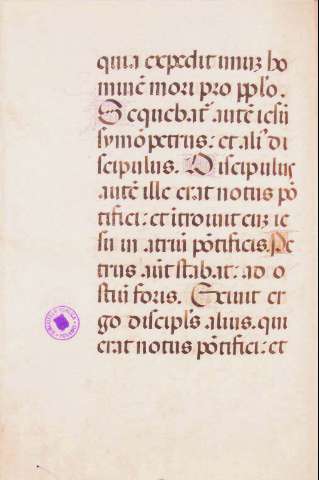 quia expedit unuz ho
minē mori pro pplo.
Sequebat᷑ autē iesū
symō petrus: et ali᷒ di
scipulus. Discipulus
autē ille erat notus pō
tifici: et ītroiuit cuz ie
su in atriū pōtificis. Pe
trus aūt stabat: ad o
stiū foris. Exiuit er
go discipl᷒s alius. qui
erat notus pōtifici: et